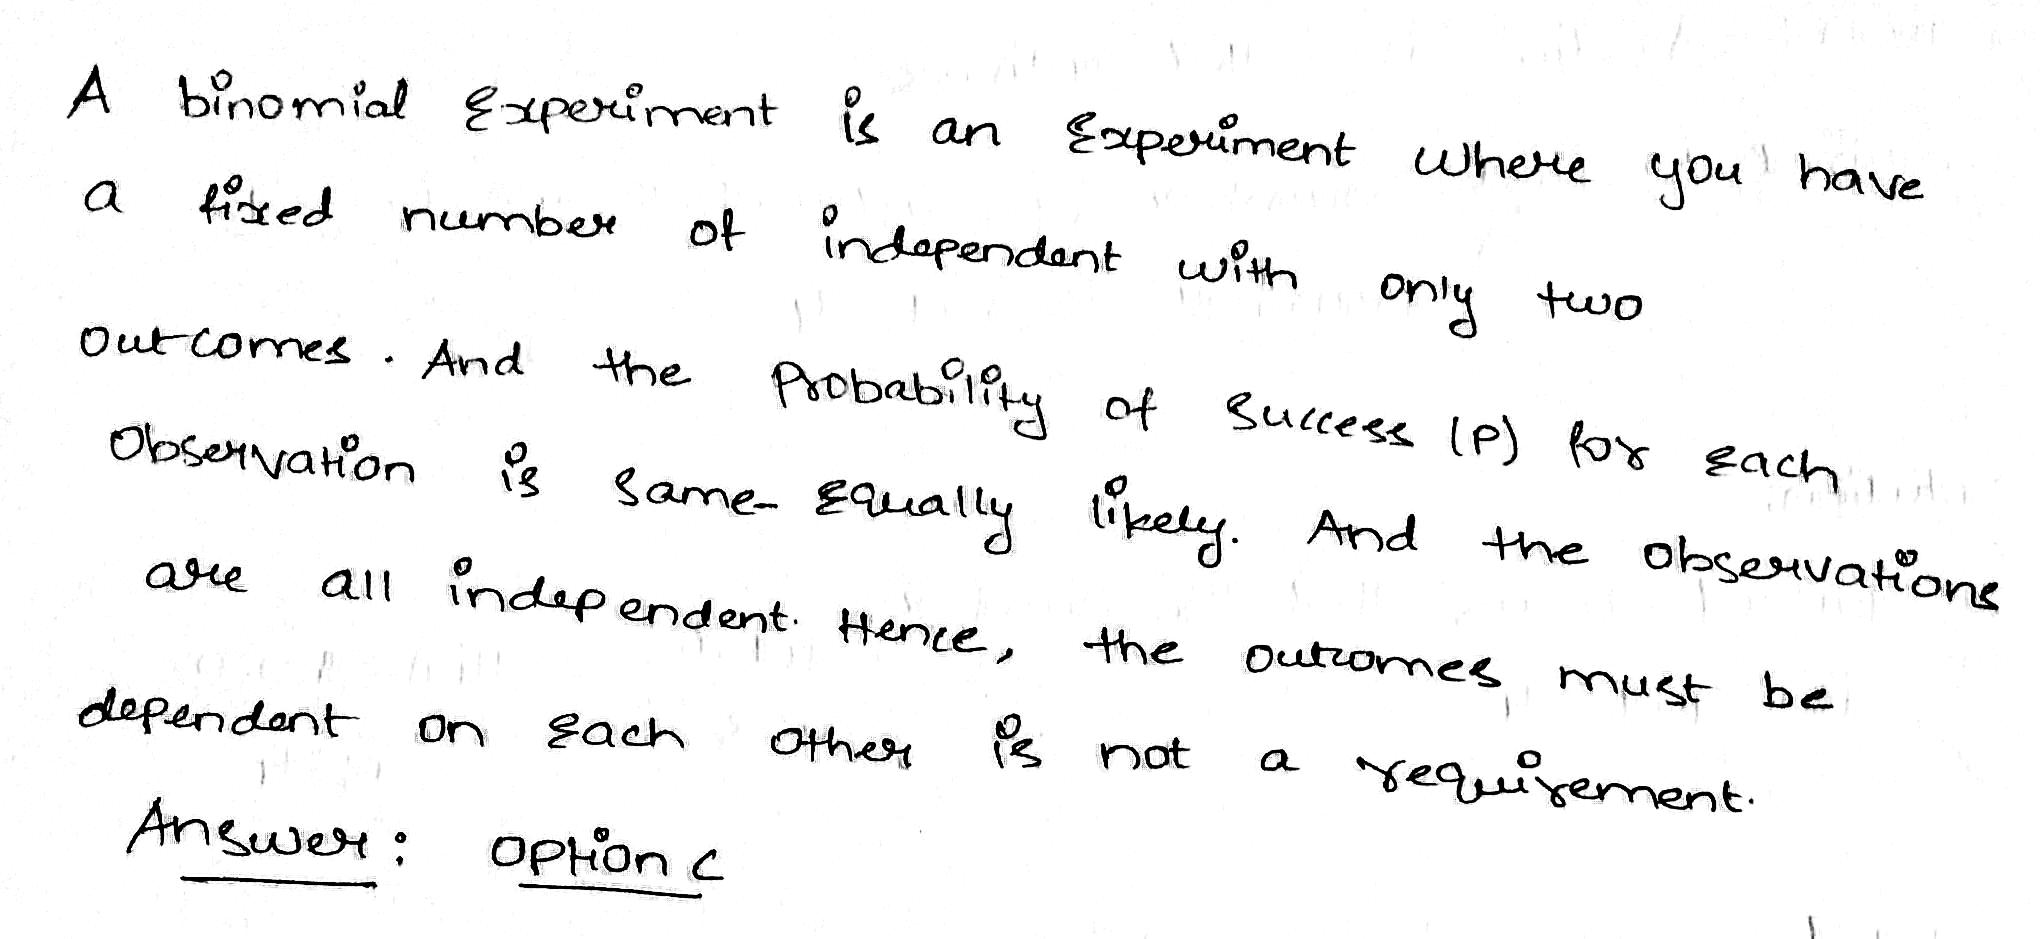 A binomial Experiment is an Experiment where you have
a fixed number of independent with only two
outcomes. And the Probability of Success (P) for Each
Observation is Same- Equally likely. And the observations
are all independent. Hence, the outcomes must be
dependent on Each other is not a requirement.
Answer: Option C